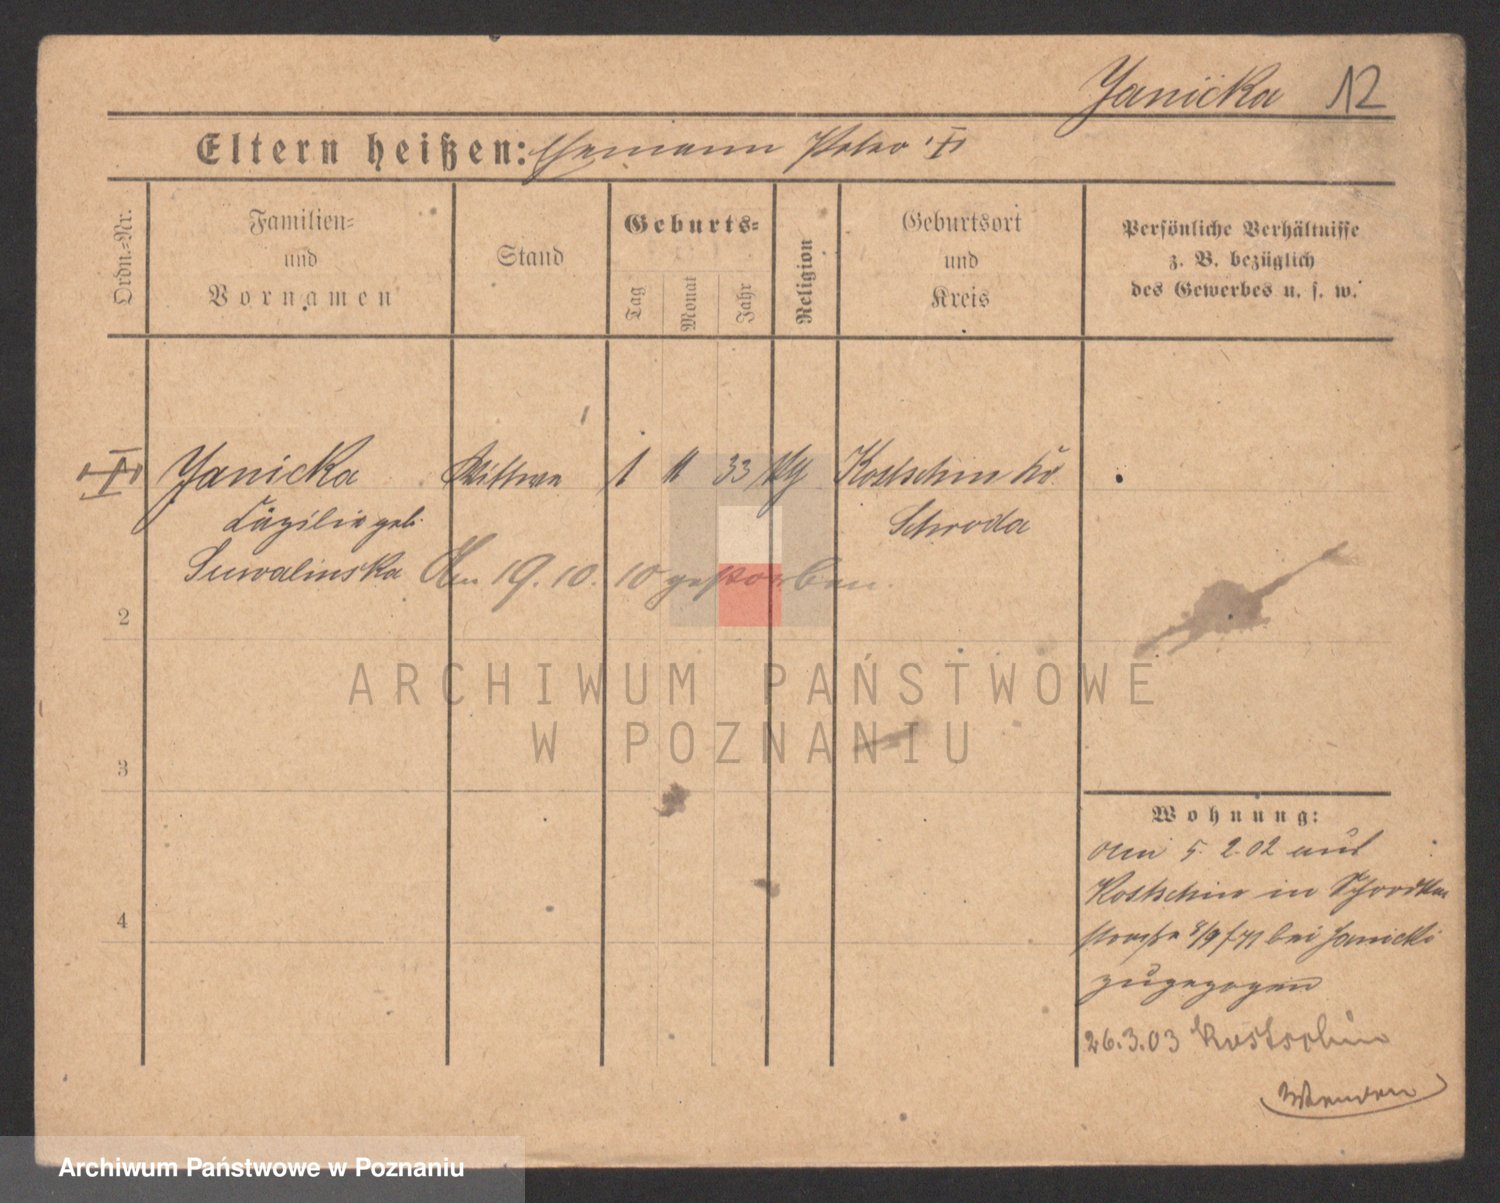 Janicka 12
Eltern heißen: Ehemann Peter
Ordn.-Nr.
Familien-
und
Vornamen
Stand
Geburts-
Tag
Monat
Jahr
Religion
Geburtsort
und
Kreis
Persönliche Verhältnisse
z. B. bezüglich
des Gewerbes u. s. w.
Janicka Wittwe 1 11 33 Kostschin
Cäzilie geb. Schroda
Suwalinska Am 19. 10. 10 gestorben.
2
3
4
ARCHIWUM PAŃSTWOWE
W POZNANIU
Wohnung:
am 5. 2. 02 aus
Kostschin in
straße 8/9 bei Janicki
zugezogen
26.3.03 Kostschin
Wenden
Archiwum Państwowe w Poznaniu